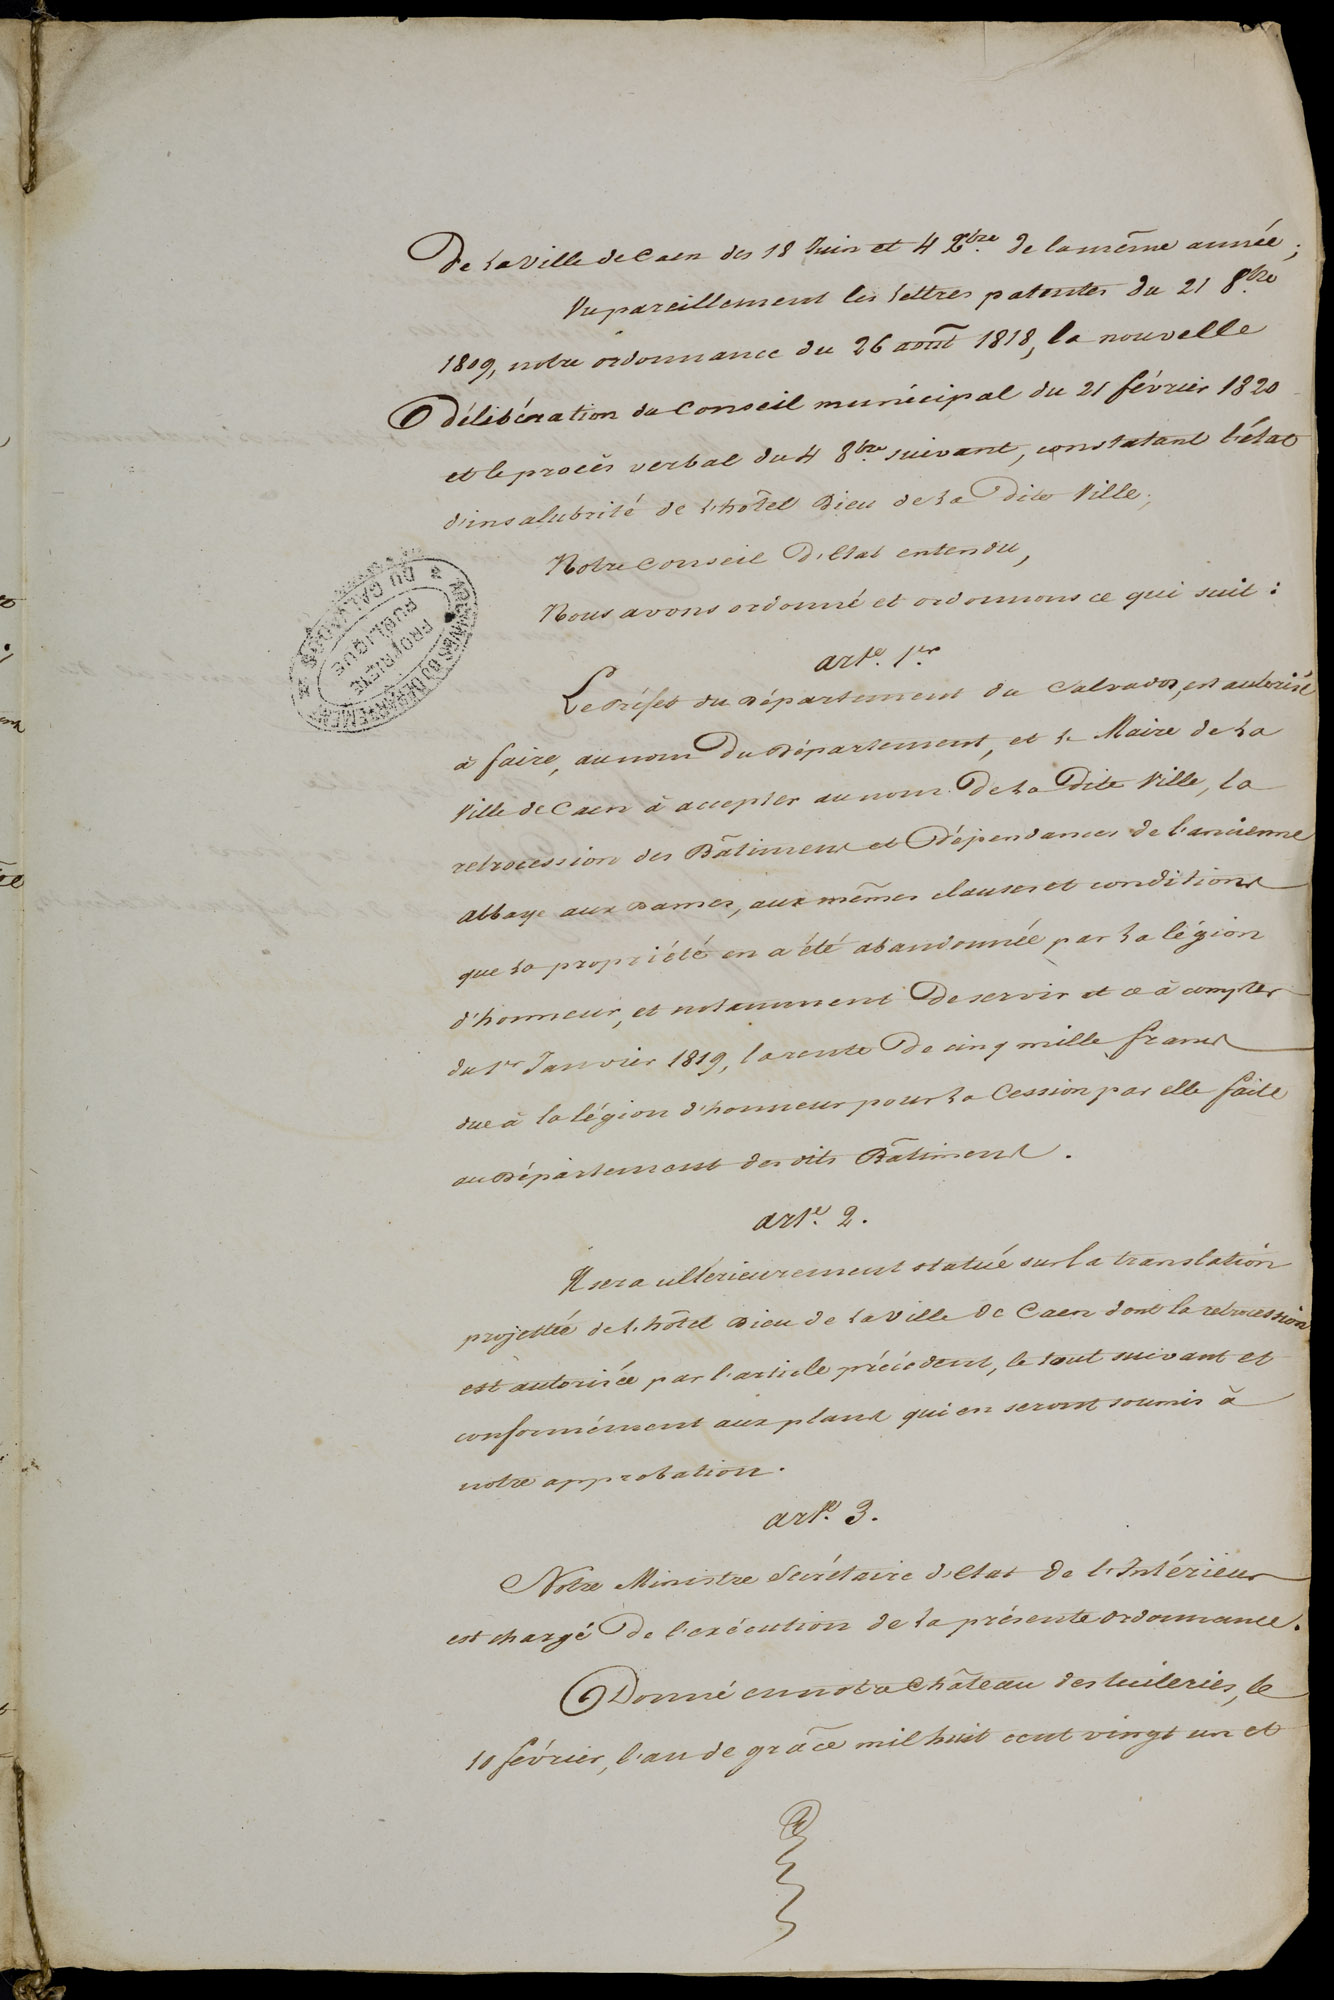 De la ville de Caen des 18 Juin et 4 Xbre de la même année ;
Vu pareillement les lettres patentes du 21 8bre
1809, notre ordonnance du 26 août 1818, la nouvelle
Délibération du Conseil municipal du 21 février 1820
et le procès verbal du 4 8bre suivant, constatant l'état
d'insalubrité de l'hôtel Dieu de la Dite Ville,
Notre Conseil D'Etat entendu,
Nous avons ordonné et ordonnons ce qui suit :
ARCHIVES DU DÉPARTEMENT DU CALVADOS
PROPRIÉTÉ PUBLIQUE
arte. 1er
Le Préfet du Département du Calvados, est autorisé
à faire, au nom Du Département, et le Maire de la
Ville de Caen à accepter au nom De la Dite Ville, la
retrocession des Bâtimens et Dépendances de l'ancienne
abbaye aux Dames, aux mêmes clauses et conditions
que la propriété en a été abandonnée par la légion
d'honneur, et notamment De servir et ce à compter
du 1er Janvier 1819, la rente De cinq mille francs
due à la légion d'honneur pour la Cession par elle faite
au Département des dits Bâtimens.
arte. 2.
Il sera ultérieurement statué sur la translation
projettée de l'hôtel Dieu de la ville de Caen dont la retrocession
est autorisée par l'article précédent, le tout suivant et
conformément aux plans qui en seront soumis à
notre approbation.
arte. 3.
Notre Ministre Secrétaire d'Etat de l'Intérieur
est chargé De l'exécution de la présente ordonnance.
Donné en notre Château des tuileries, le
10 février, l'an de grâce mil huit cent vingt un et